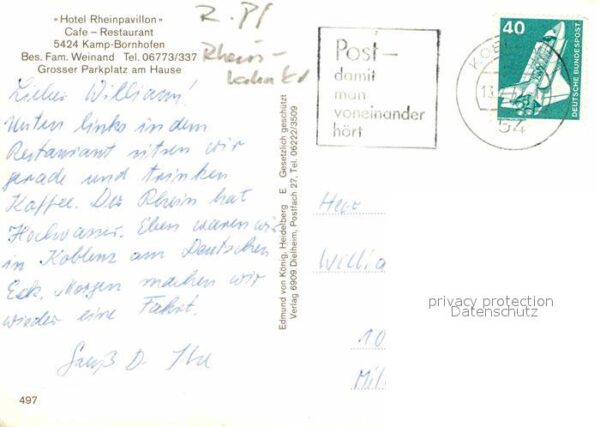 »Hotel Rheinpavillon«
Cafe – Restaurant
5424 Kamp-Bornhofen
Bes. Fam. Weinand Tel. 06773/337
Grosser Parkplatz am Hause
R.Pf
Rhein-
Lieber William!
Unten links in dem
Restaurant sitzen wir
gerade und trinken
Kaffee. Der Rhein hat
Hochwasser. Eben waren wir
in Koblenz am Deutschen
Eck. Morgen machen wir
wieder eine Fahrt.
Gruß D.
497
Edmund von König, Heidelberg E Gesetzlich geschützt
Verlag 6909 Dielheim, Postfach 27, Tel. 06222/3509
Post-
damit
man
voneinander
hört
54
40
DEUTSCHE BUNDESPOST
Herr
Willia
10
Mil
privacy protection
Datenschutz